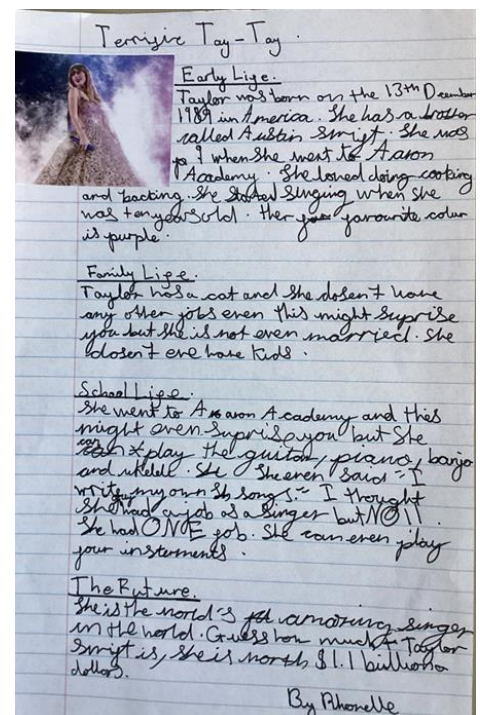 Terrisic Tay-Tay.
Early Lige.
Taylor was born on the 13th December
1989 in America. She has a brother
called Austin Swist. She was
9 when she went to Aaron
Academy. She loved doing cooking
and backing. She started singing when she
was ten years old. Her gavourite colur
is purple.
Family Lige.
Taylor has a cat and she dosen't have
any other jobs even this might suprise
you but she is not even married. She
dosen't eve have kids.
School Lige.
She went to Aaron Academy and this
might even suprise you but she
can play the guitar, piano, banjo
and ukelele. She even said "I
write my own songs." I thought
she had a job as a singer but NO!!
She had ONE job. She can even play
four insterments.
The Future.
She is the world's amazing singer
in the world. Guess how much Taylor
Swist is, she is worth $1.1 billion
dollars.
By Rhonelle